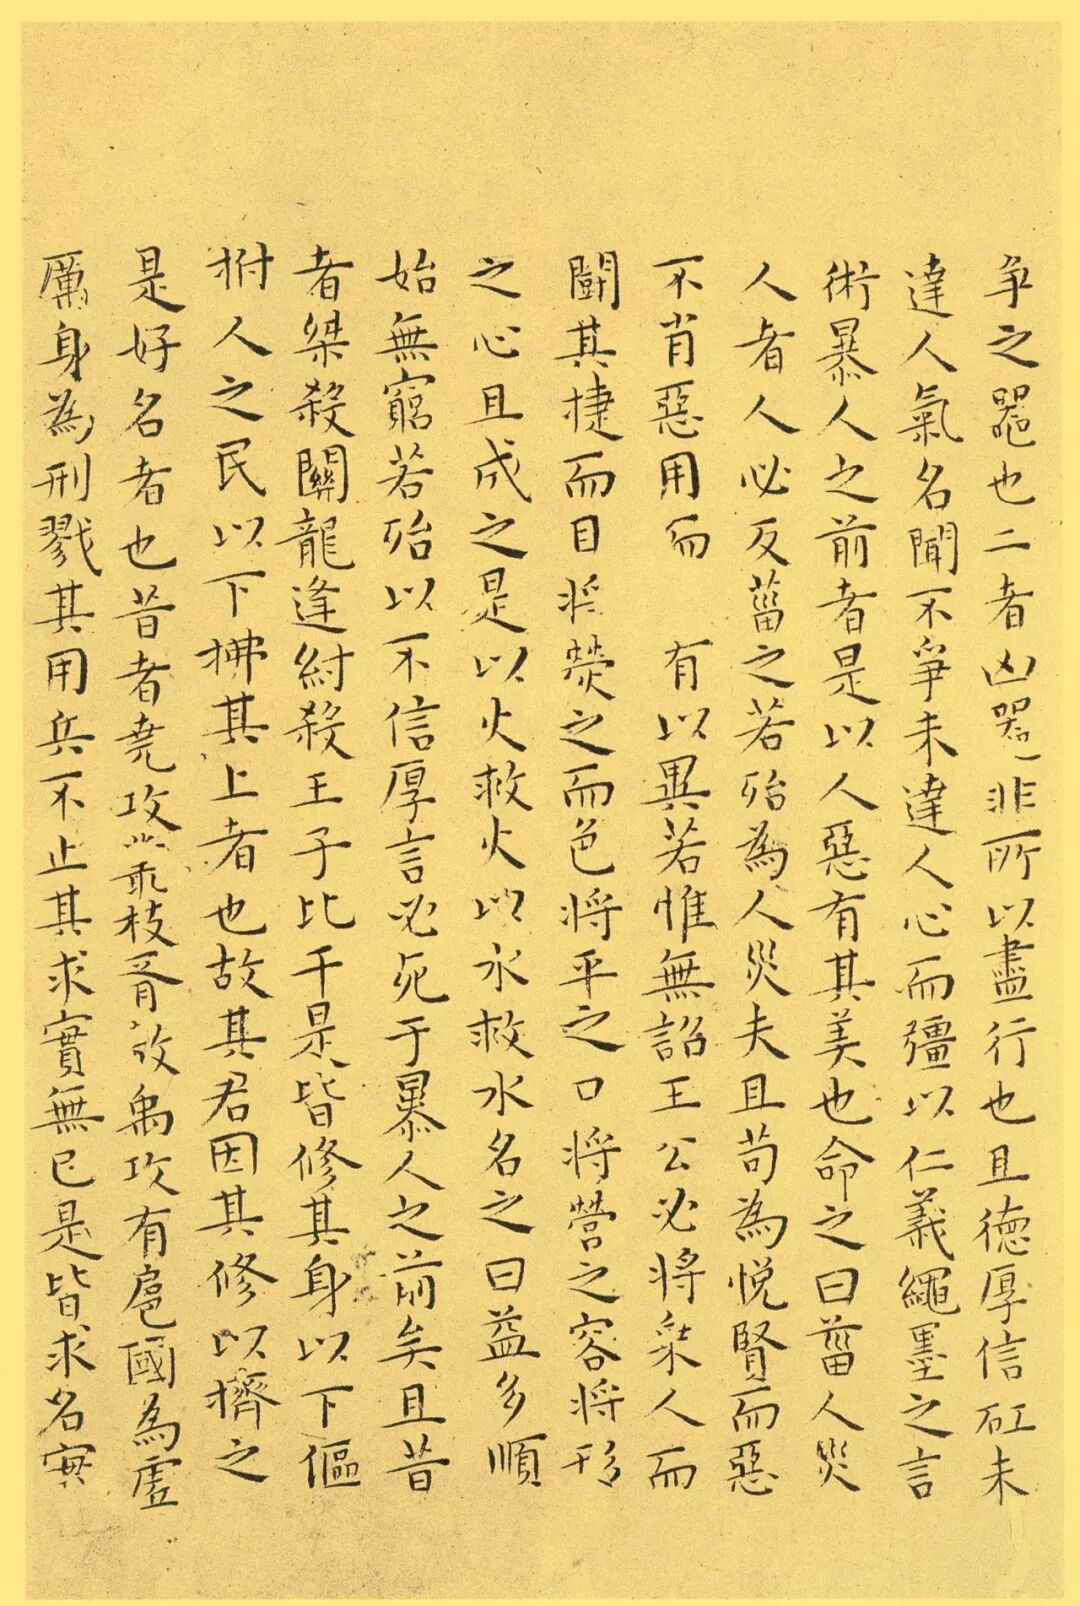 争之器也二者凶器非所以盡行也且德厚信矼未
達人氣名聞不爭未達人心而彊以仁義繩墨之言
術暴人之前者是以人惡有其美也命之曰菑人災
人者人必反菑之若殆為人災夫且苟為悅賢而惡
不肖惡用而 有以異若惟無詔王公必將乘人而
鬪其捷而目將熒之而色將平之口將營之容將形
之心且成之是以火救火以水救水名之曰益多順
始無窮若殆以不信厚言必死于暴人之前矣且昔
者桀殺關龍逢紂殺王子比干是皆修其身以下傴
拊人之民以下拂其上者也故其君因其修以擠之
是好名者也昔者堯攻叢枝胥敖禹攻有扈國為虛
厲身為刑戮其用兵不止其求實無已是皆求名實